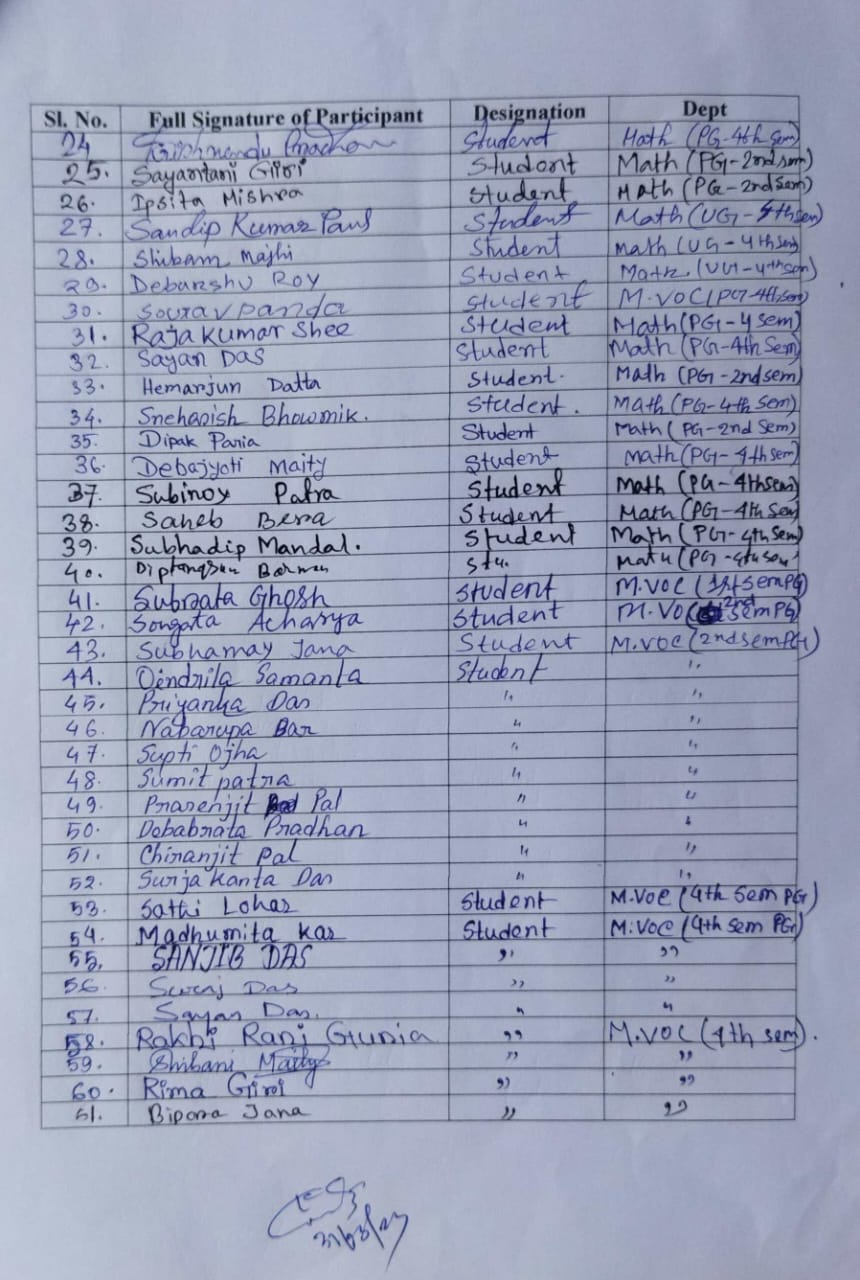 Sl. No. Full Signature of Participant Designation Dept
24 Krishnendu Pradhan Student Math (PG-4th Sem)
25. Sayantani Giri Student Math (PG-2nd sem)
26. Ipsita Mishra Student Math (PG-2nd Sem)
27. Sandip Kumar Paul Student Math (UG-5th sem)
28. Shibam Majhi Student Math (UG-4th sem)
29. Debanshu Roy Student Math. (UG-4th sem)
30. Sourav panda Student M.VOC (PG-4th sem)
31. Raja kumar Shee Student Math (PG-4 Sem)
32. Sayan Das Student Math (PG-4th Sem)
33. Hemarjun Datta Student. Math (PG-2nd sem)
34. Snehasish Bhowmik. Student. Math (PG-4th Sem)
35. Dipak Paria Student Math (PG-2nd Sem)
36. Debajyoti Maity Student Math (PG-4th sem)
37. Subinoy Patra Student Math (PG-4th sem)
38. Saheb Bera Student Math (PG-4th Sem)
39. Subhadip Mandal. Student Math (PG-4th Sem)
40. Barman Stu. Math (PG-4th sem)
41. Subrata Ghosh Student M.VOC (1st sem PG)
42. Songata Acharya Student M.VOC (2nd sem PG)
43. Subhamay Jana Student M.VOC (2nd sem PG)
44. Oindrila Samanta Student "
45. Priyanka Das " "
46. Nabarupa Bar " "
47. Supti Ojha " "
48. Sumit patra " "
49. Prasenjit Pal " "
50. Debabrata Pradhan " "
51. Chiranjit Pal " "
52. Surja Kanta Das " "
53. Sathi Lohar Student M.VOC (4th Sem PG)
54. Madhumita Kar Student M.VOC (4th Sem PG)
55. SANJIB DAS " "
56. Suraj Das " "
57. Sayan Das. " "
58. Rakhi Rani Gunia " M.VOC (4th sem).
59. Shibani Maity " "
60. Rima Giri " "
61. Jana " "